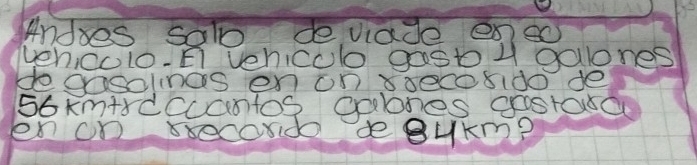 Andres salo de viade en so
vehiculo. El vehiculo gasto 4 galones
de gasolinas en un rrecorido de
56 km+rd cuantos galones gastara
en un rrecorido de 84 km?